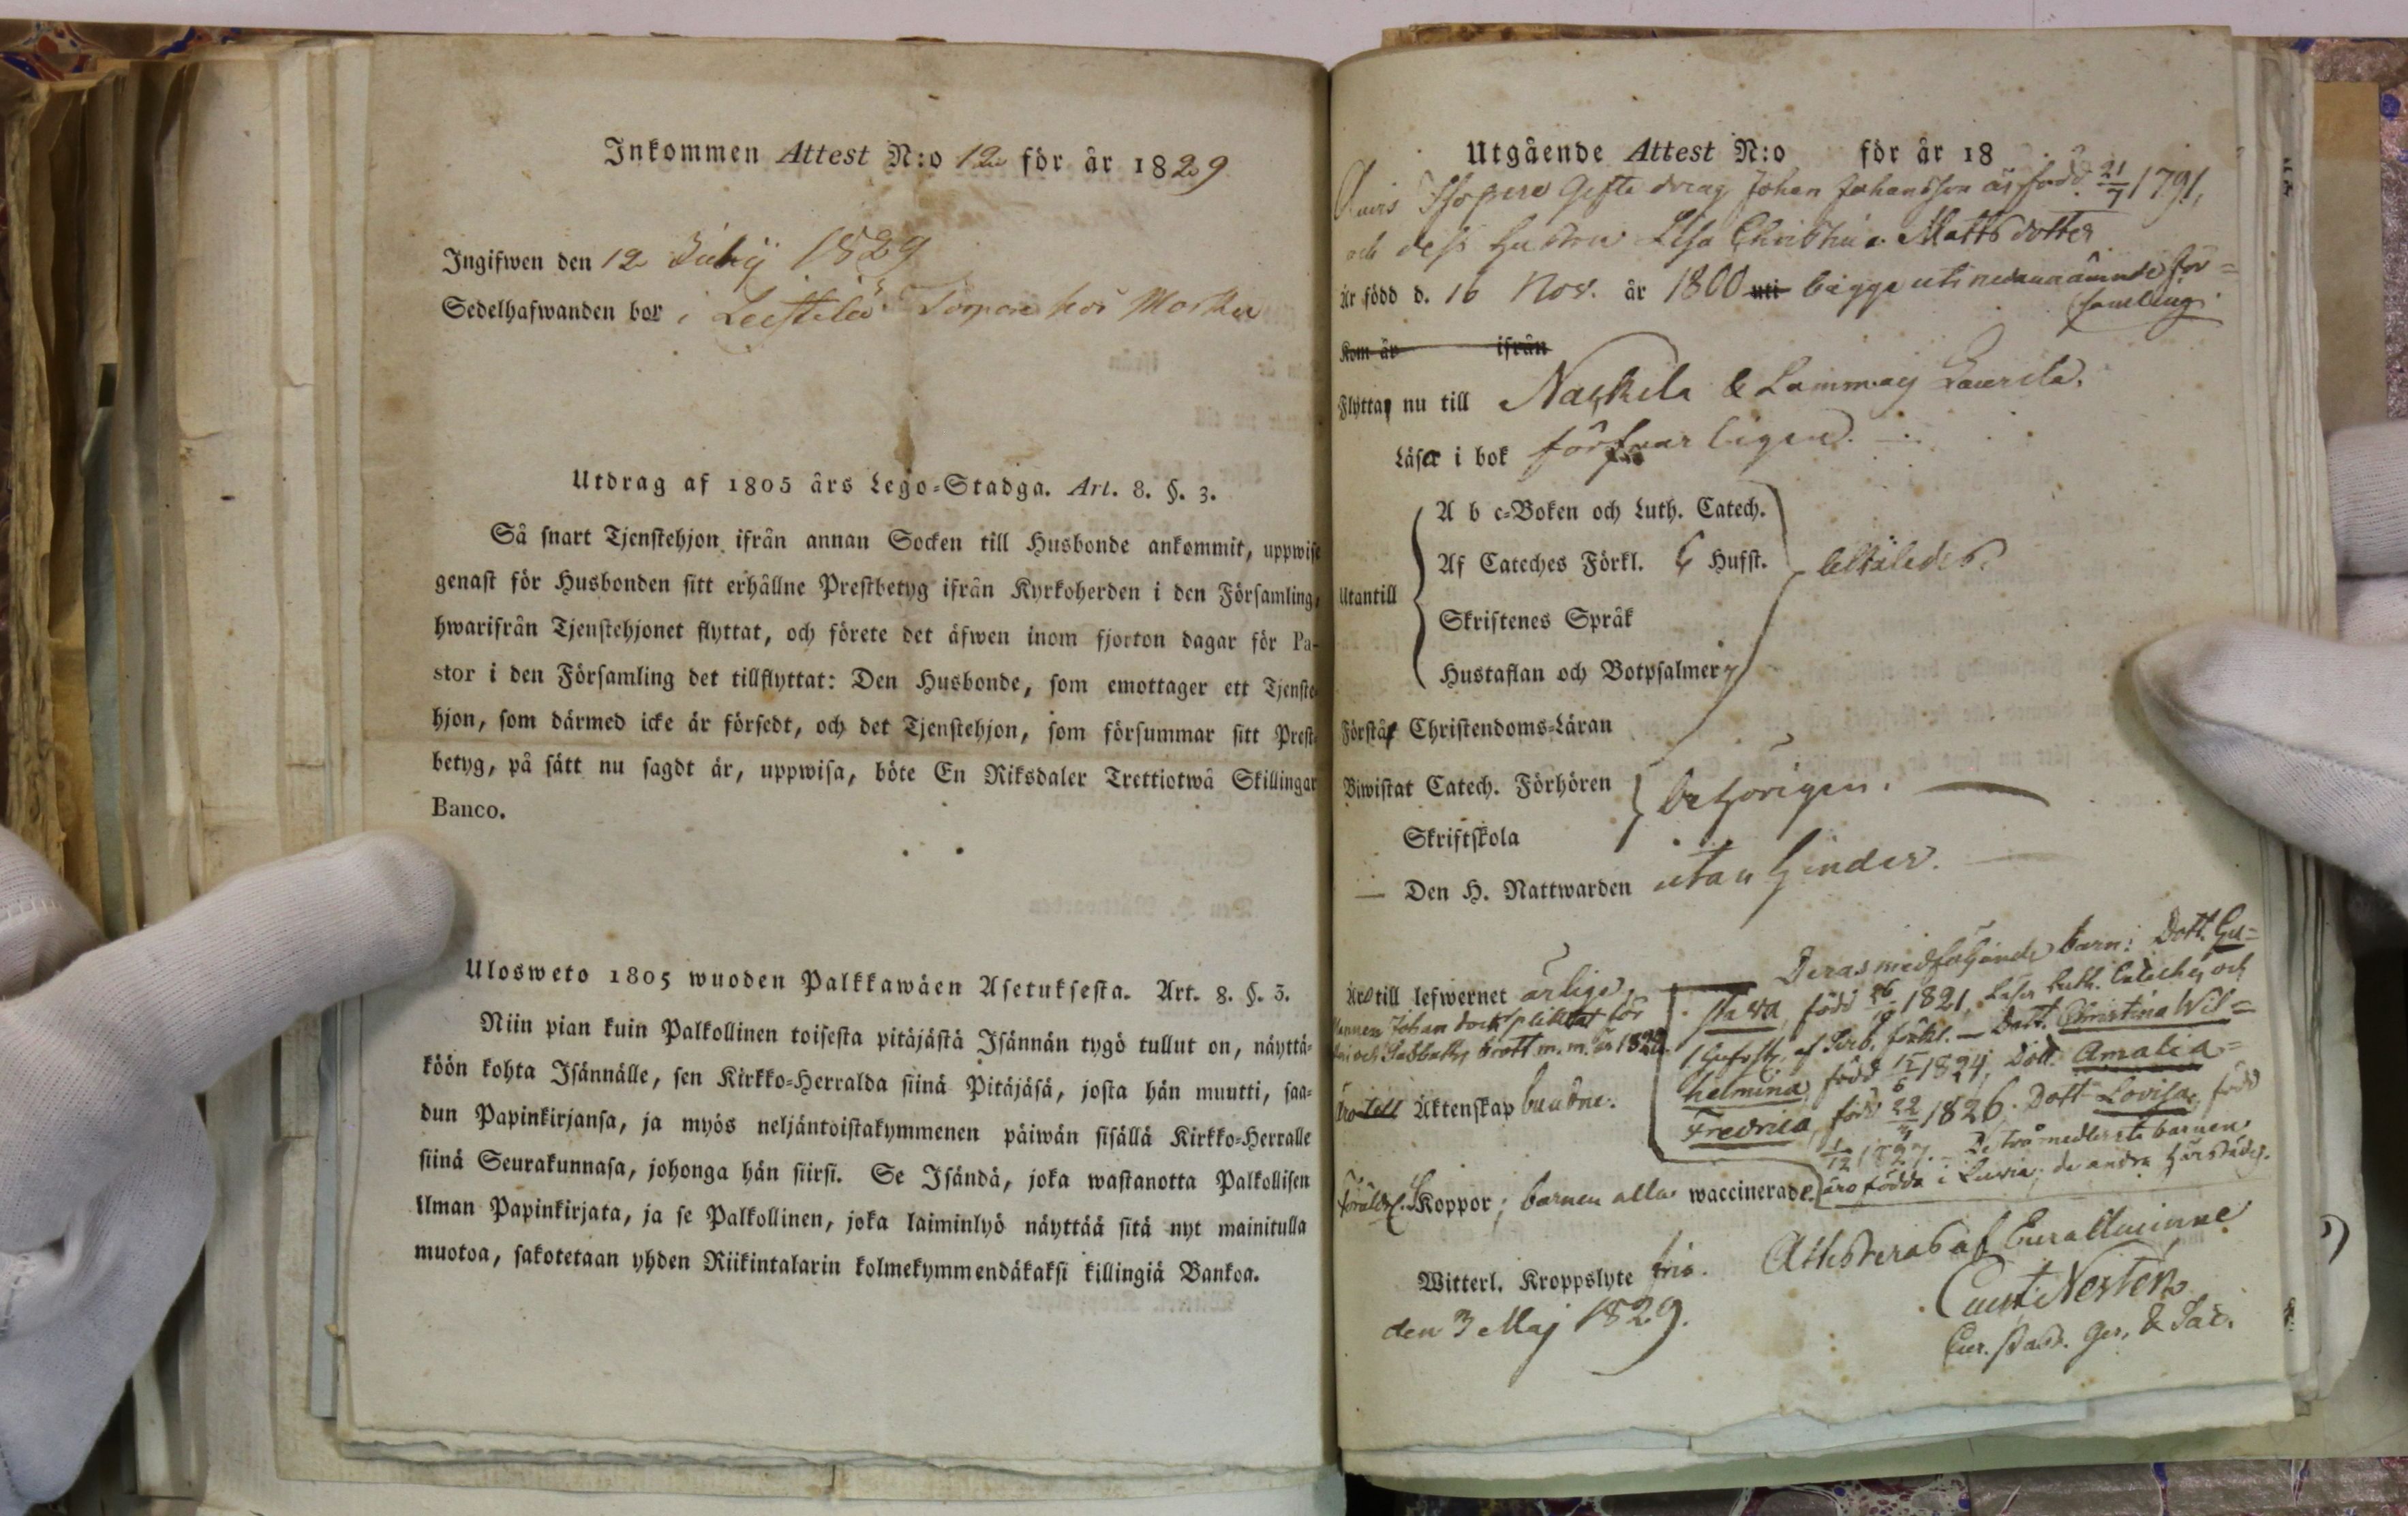 Inkommen Attest N:o 12 för år 1829
Ingifwen den 12 Julij 1829
Sedelhafwanden bor i Leistilä Torpare hos
Utdrag af 1805 års Lego-Stadga. Art. 8. §. 3.
Så snart Tjenstehjon ifrån annan Socken till Husbonde ankommit, uppwise
genast för Husbonden sitt erhållne Prestbetyg ifrån Kyrkoherden i den Församling,
hwarifrån Tjenstehjonet flyttat, och förete det äfwen inom fjorton dagar för Pa-
stor i den Församling det tillflyttat: Den Husbonde, som emottager ett Tjenste-
hjon, som därmed icke är försedt, och det Tjenstehjon, som försummar sitt Prest-
betyg, på sätt nu sagdt är, uppwisa, böte En Riksdaler Trettiotwå Skillingar
Banco.
Ulosweto 1805 wuoden Palkkawäen Asetuksesta. Art. 8. §. 3.
Niin pian kuin Palkollinen toisesta pitäjästä Isännän tygö tullut on, näyttä-
köön kohta Isännälle, sen Kirkko-Herralda siinä Pitäjäsä, josta hän muutti, saa-
dun Papinkirjansa, ja myös neljäntoistakymmenen päiwän sisällä Kirkko-Herralle
siinä Seurakunnasa, johonga hän siirsi. Se Isändä, joka wastanotta Palkollisen
ilman Papinkirjata, ja se Palkollinen, joka laiminlyö näyttää sitä nyt mainitulla
muotoa, sakotetaan yhden Riikintalarin kolmekymmendäkaksi killingiä Bankoa.
Utgående Attest N:o för år 18
Gifte dräng Johan Johansson är född 21/7 1791,
och dess hustru Lisa Christina Mattsdotter
Är född d. 16 Nov. år 1800 uti bägge uti nedannämnde för=
samling.
Kom år ifrån
Flyttar nu till Nackila & Lammais Laurila.
Läser i bok försvarligen.
Utantill
A b c-Boken och Luth. Catech.
Af Cateches Förkl. 6 Hufst.
Skriftenes Språk
Hustaflan och Botpsalmer 7
Förstår Christendoms-Läran
Biwistat Catech. Förhören behörigen.
Skriftskola
Den H. Nattwarden utan hinder.
Äro till lefwernet ärlige,
Mannen Johan dock pliktat för
och Sabbaths brott m. m. år
Äro till Äktenskap bundne.
Deras medföljande barn: Dott. Gu=
stava, född 26/9 1821, Läser Luth. Cateches och
1 Hufvstk. af förkl. — Dott. Christina Wil=
helmina, född 15/6 1824, Dott. Amalia
Fredrica, född 22/3 1826. Dott Lovisa, född
1/12 1827. De två medlersta barnen
äro födda i Luvia, de andra härstädes.
Föräldr. Koppor; barnen alla waccinerade.
Witterl. Kroppslyte fria. Attesteras af Euraåminne
den 3 Maj 1829.